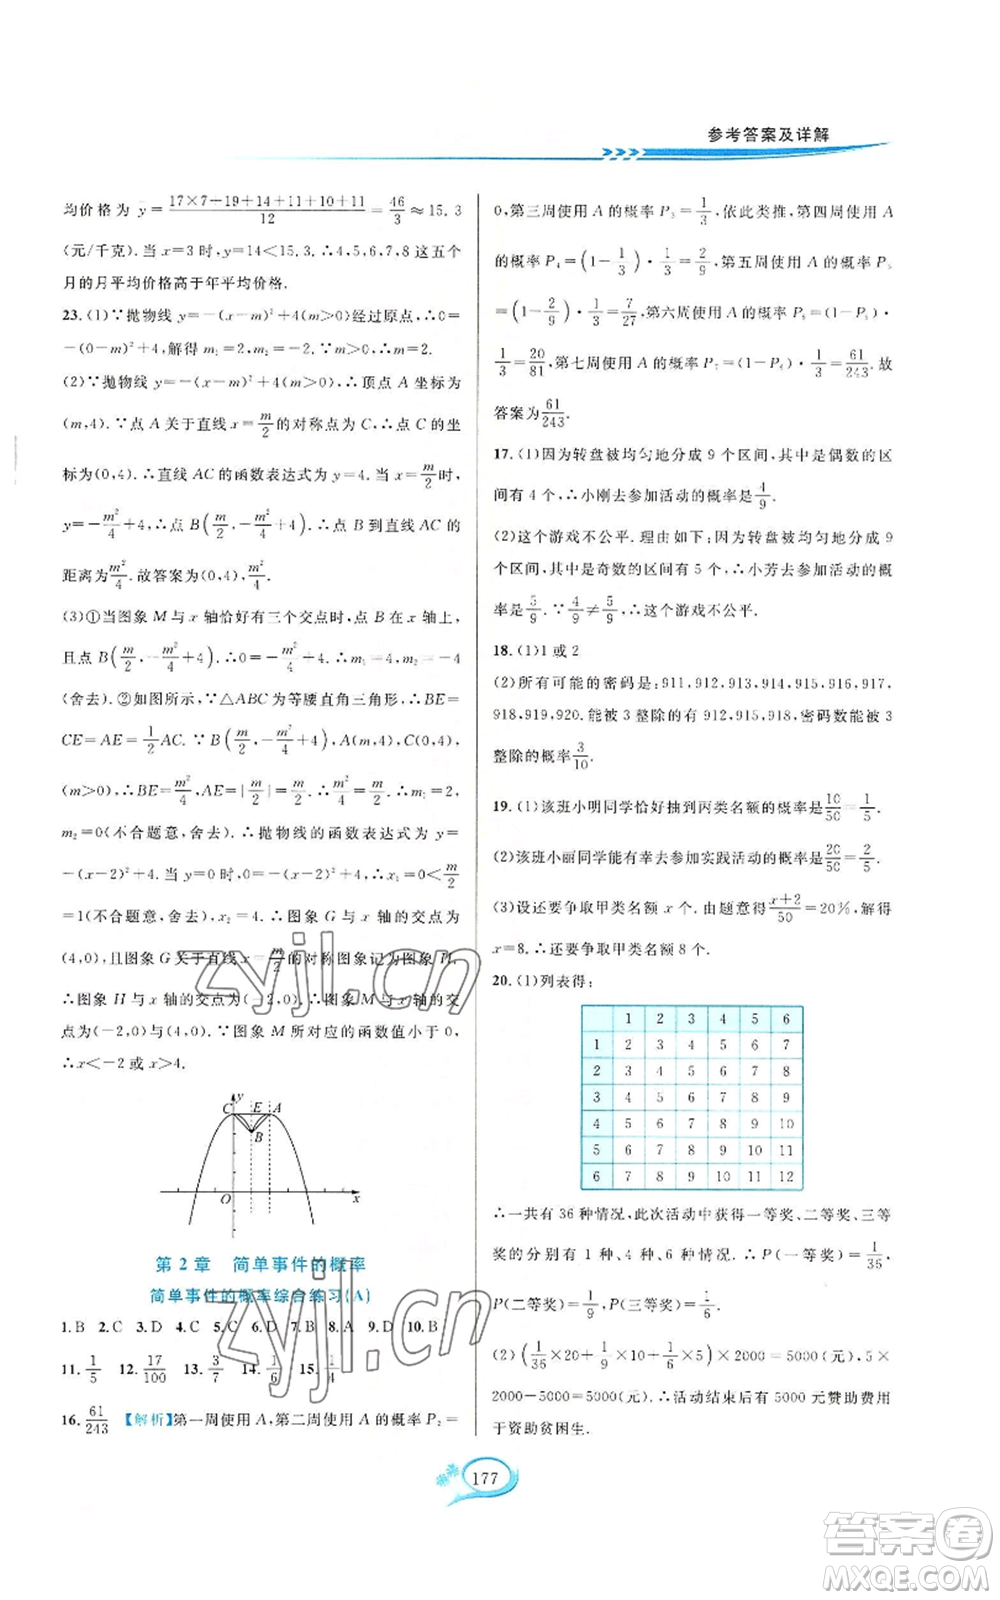 参考答案及详解
均价格为 y=(17×7+19+14+11+10+11)/12=46/3≈15.3
(元/千克).当 x=3 时,y=14<15.3,∴4,5,6,7,8 这五个
月的月平均价格高于年平均价格.
23.(1)∵抛物线 y=-(x-m)²+4(m>0)经过原点,∴0=
-(0-m)²+4,解得 m₁=2,m₂=-2.∵m>0,∴m=2.
(2)∵抛物线 y=-(x-m)²+4(m>0),∴顶点 A 坐标为
(m,4).∵点 A 关于直线 x=m/2 的对称点为 C,∴点 C 的坐
标为(0,4).∴直线 AC 的函数表达式为 y=4.当 x=m/2 时,
y=-m²/4+4,∴点 B(m/2,-m²/4+4).∴点 B 到直线 AC 的
距离为 m²/4.故答案为(0,4),m²/4.
(3)①当图象 M 与 x 轴恰好有三个交点时,点 B 在 x 轴上,
且点 B(m/2,-m²/4+4).∴0=-m²/4+4.∴m₁=4,m₂=-4
(舍去).②如图所示,∵△ABC 为等腰直角三角形,∴BE=
CE=AE=1/2AC.∵B(m/2,-m²/4+4),A(m,4),C(0,4)
(m>0),∴BE=m²/4,AE=|m/2|.∴m²/4=m/2.∴m₁=2,
m₂=0(不合题意,舍去).∴抛物线的函数表达式为 y=
-(x-2)²+4.当 y=0 时,0=-(x-2)²+4,∴x₁=0<m/2
=1(不合题意,舍去),x₂=4.∴图象 G 与 x 轴的交点为
(4,0),且图象 G 关于直线 x=m/2 的对称图象记为图象 H.
∴图象 H 与 x 轴的交点为(-2,0).∴图象 M 与 x 轴的交
点为(-2,0)与(4,0).∵图象 M 所对应的函数值小于 0,
∴x<-2 或 x>4.
y
C E A
B
O x
第 2 章 简单事件的概率
简单事件的概率综合练习(A)
1.B 2.C 3.D 4.C 5.C 6.D 7.B 8.A 9.D 10.B
11.1/5 12.17/100 13.3/7 14.1/6 15.1/4
16.61/243 【解析】第一周使用 A,第二周使用 A 的概率 P₂=
0,第三周使用 A 的概率 P₃=1/3,依此类推,第四周使用 A
的概率 P₄=(1-1/3)·1/3=2/9,第五周使用 A 的概率 P₅
=(1-2/9)·1/3=7/27,第六周使用 A 的概率 P₆=(1-7/27)·
1/3=20/81,第七周使用 A 的概率 P₇=(1-P₆)×1/3=61/243.故
答案为61/243.
17.(1)因为转盘被均匀地分成 9 个区间,其中是偶数的区
间有 4 个,∴小刚去参加活动的概率是4/9.
(2)这个游戏不公平.理由如下:因为转盘被均匀地分成 9
个区间,其中是奇数的区间有 5 个,∴小芳去参加活动的概
率是5/9.∵4/9≠5/9,∴这个游戏不公平.
18.(1)1 或 2
(2)所有可能的密码是:911,912,913,914,915,916,917,
918,919,920.能被 3 整除的有 912,915,918,密码数能被 3
整除的概率3/10.
19.(1)该班小明同学恰好抽到丙类名额的概率是10/50=1/5.
(2)该班小丽同学能有幸去参加实践活动的概率是20/50=2/5.
(3)设还要争取甲类名额 x 个.由题意得(x+2)/50=20%,解得
x=8.∴还要争取甲类名额 8 个.
20.(1)列表得:
1 2 3 4 5 6
1 2 3 4 5 6 7
2 3 4 5 6 7 8
3 4 5 6 7 8 9
4 5 6 7 8 9 10
5 6 7 8 9 10 11
6 7 8 9 10 11 12
∴一共有 36 种情况,此次活动中获得一等奖、二等奖、三等
奖的分别有 1 种、4 种、6 种情况.∴P(一等奖)=1/36,
P(二等奖)=1/9,P(三等奖)=1/6.
(2)(1/36×20+1/9×10+1/6×5)×2000=5000(元),5×
2000-5000=5000(元).∴活动结束后有 5000 元赞助费用
于资助贫困生.
zyjl.cn
zyjl.cn
177
答案卷
MXQE.COM